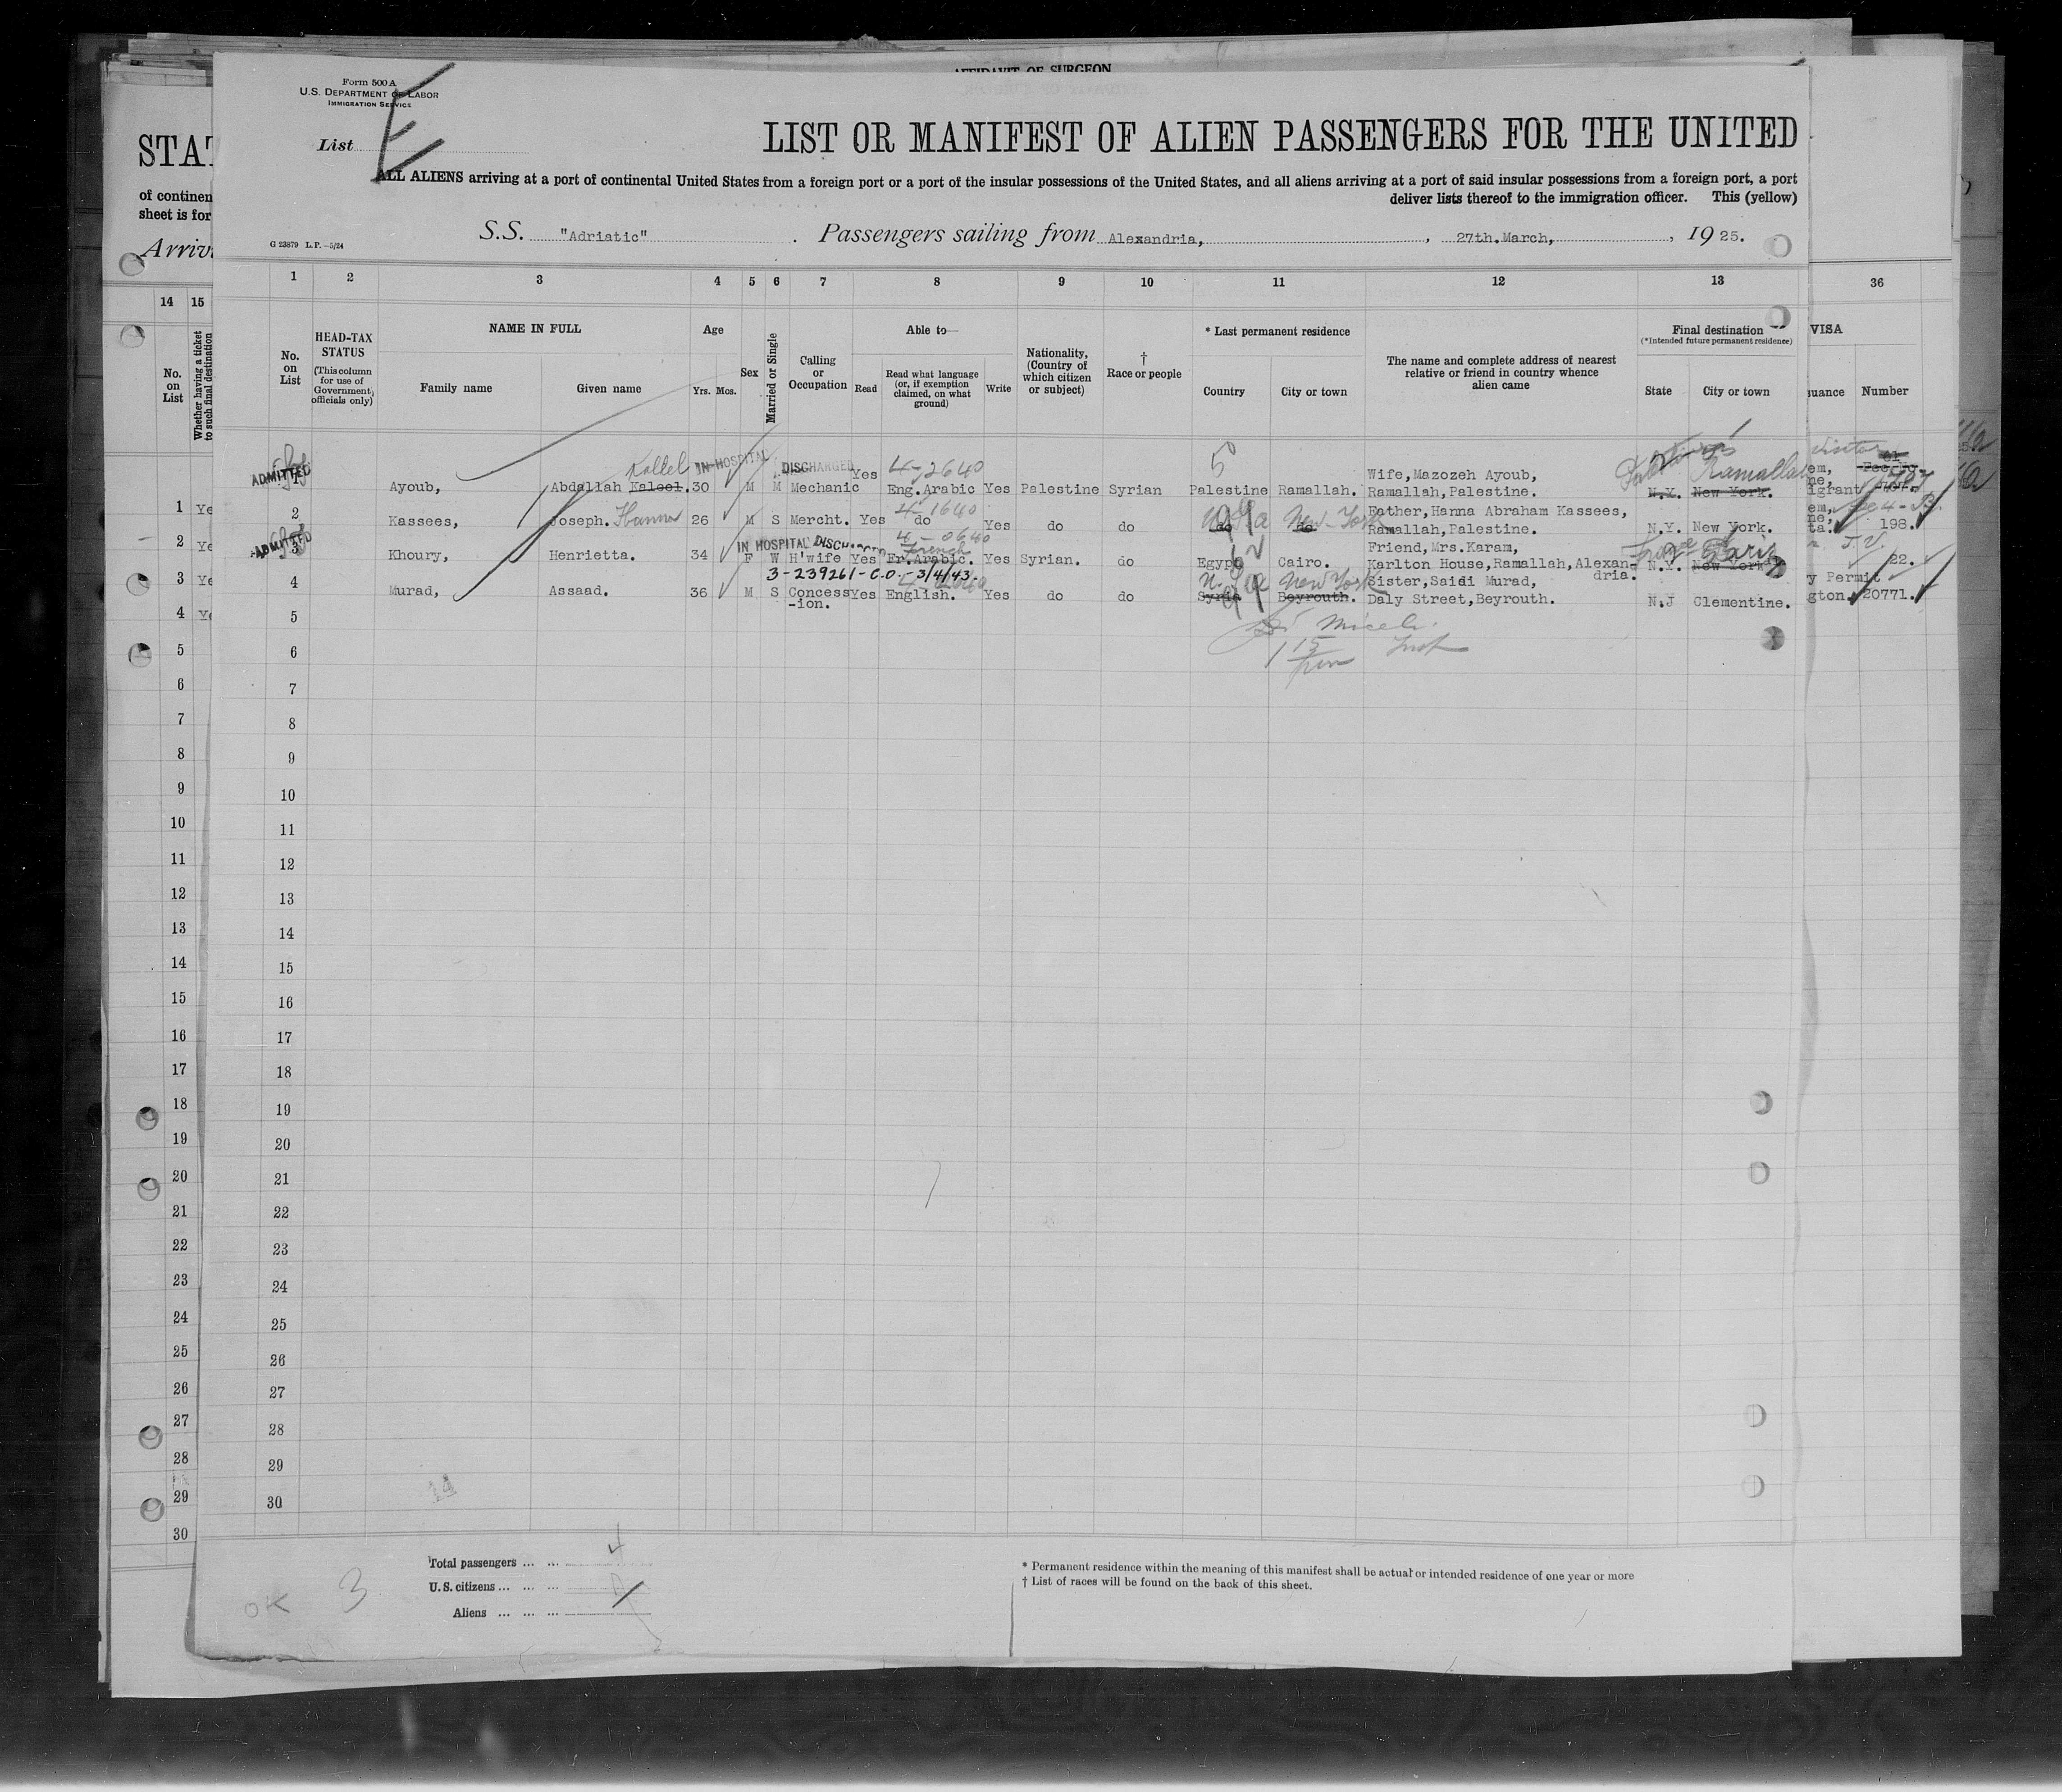 AFFIDAVIT OF SURGEON
Form 500 A
U.S. DEPARTMENT OF LABOR
IMMIGRATION SERVICE
List E
LIST OR MANIFEST OF ALIEN PASSENGERS FOR THE UNITED
ALL ALIENS arriving at a port of continental United States from a foreign port or a port of the insular possessions of the United States, and all aliens arriving at a port of said insular possessions from a foreign port, a port
deliver lists thereof to the immigration officer. This (yellow)
G 23879 L.P.—5/24
S.S. "Adriatic". Passengers sailing from Alexandria, , 27th.March, , 1925.
STAT
of continen
sheet is for
Arriv
1 2 3 4 5 6 7 8 9 10 11 12 13
14 15
36
No. on List
HEAD-TAX STATUS (This column for use of Government officials only)
NAME IN FULL
Family name
Given name
Age
Yrs. Mos.
Sex
Married or Single
Calling or Occupation
Able to—
Read
Read what language (or, if exemption claimed, on what ground)
Write
Nationality, (Country of which citizen or subject)
† Race or people
* Last permanent residence
Country
City or town
The name and complete address of nearest relative or friend in country whence alien came
Final destination
(*Intended future permanent residence)
State
City or town
No. on List
Whether having a ticket to such final destination
VISA
suance
Number
ADMITTED
Kallel IN HOSPITAL DISCHARGED 4-2640 5
1 Ayoub, Abdallah Kaleel. 30 M M Mechanic Yes Eng.Arabic Yes Palestine Syrian Palestine Ramallah. Wife,Mazozeh Ayoub, Ramallah,Palestine. N.Y. New York. Ramallah
4-1640
2 Kassees, Joseph. Hanna 26 M S Mercht. Yes do Yes do do do do New York Father,Hanna Abraham Kassees, Ramallah,Palestine. N.Y. New York. 198.
ADMITTED
IN HOSPITAL DISCHARGED 4-0640 French
3 Khoury, Henrietta. 34 F W H'wife Yes Fr.Arabic. Yes Syrian. do Egypt Cairo. Friend, Mrs.Karam, Karlton House,Ramallah,Alexandria. N.Y. New York France Paris 22.
3-239261-C.O.-3/4/43.
4 Murad, Assaad. 36 M S Concess-ion. Yes English. Yes do do Syria Beyrouth. New York Sister,Saidi Murad, Daly Street,Beyrouth. N.J Clementine. y Permit gton. 20771.
5
6
7
8
9
10
11
12
13
14
15
16
17
18
19
20
21
22
23
24
25
26
27
28
29
30
1 Ye
2 Ye
3 Ye
4 Ye
5
6
7
8
9
10
11
12
13
14
15
16
17
18
19
20
21
22
23
24
25
26
27
28
29
30
Total passengers ... ... 4
U.S. citizens ... ... ...
Aliens ... ... ...
OK 3
* Permanent residence within the meaning of this manifest shall be actual or intended residence of one year or more
† List of races will be found on the back of this sheet.